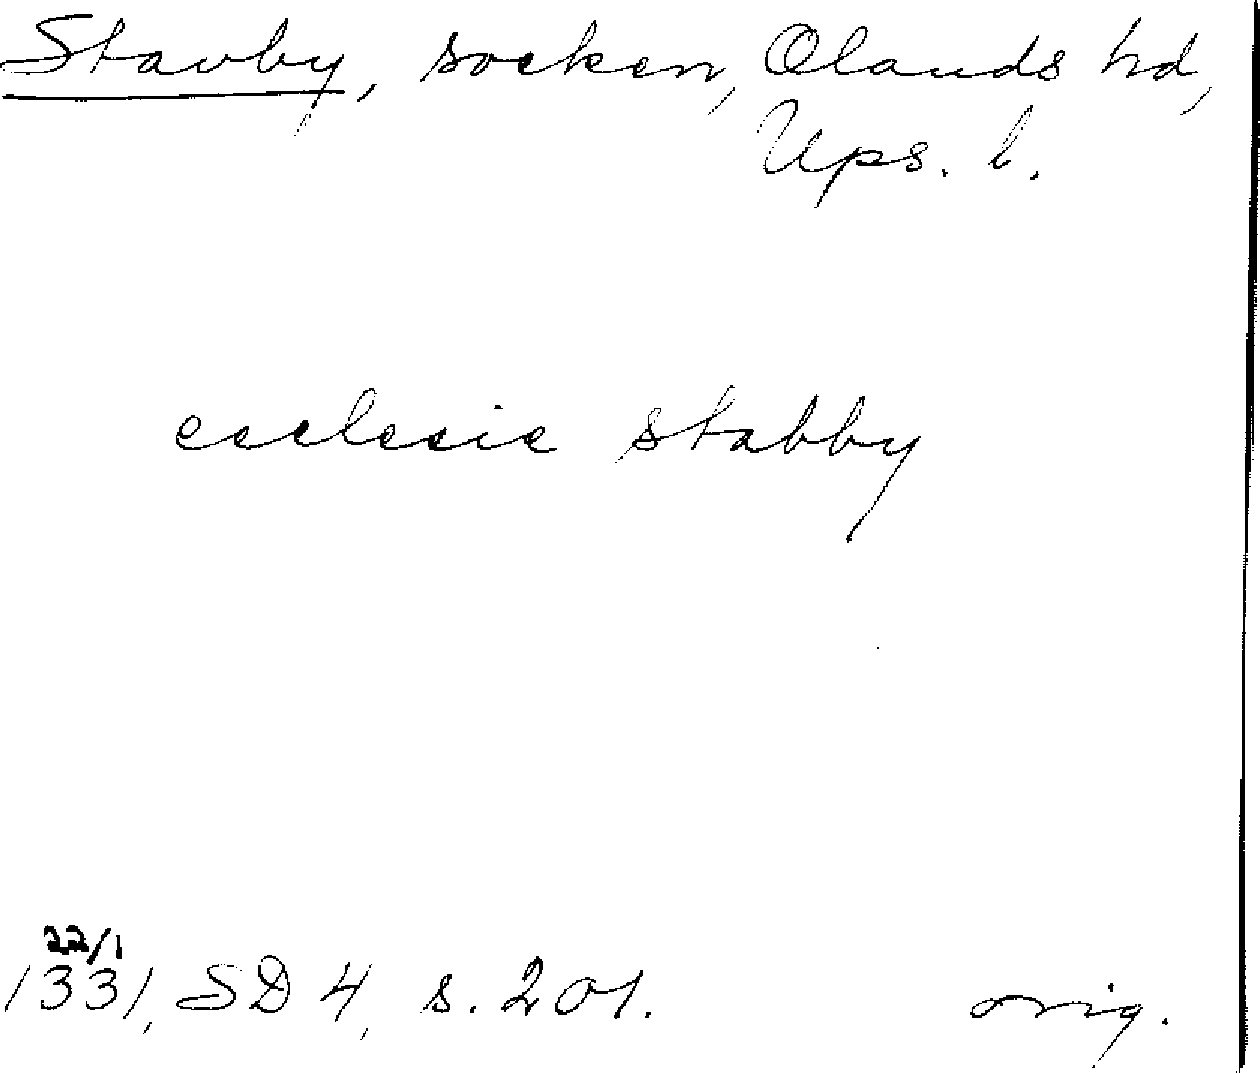 Stavby, socken, Olands hd,
Ups. l.
ecclesie stabby
22/1
1331, SD 4, s. 201.
orig.